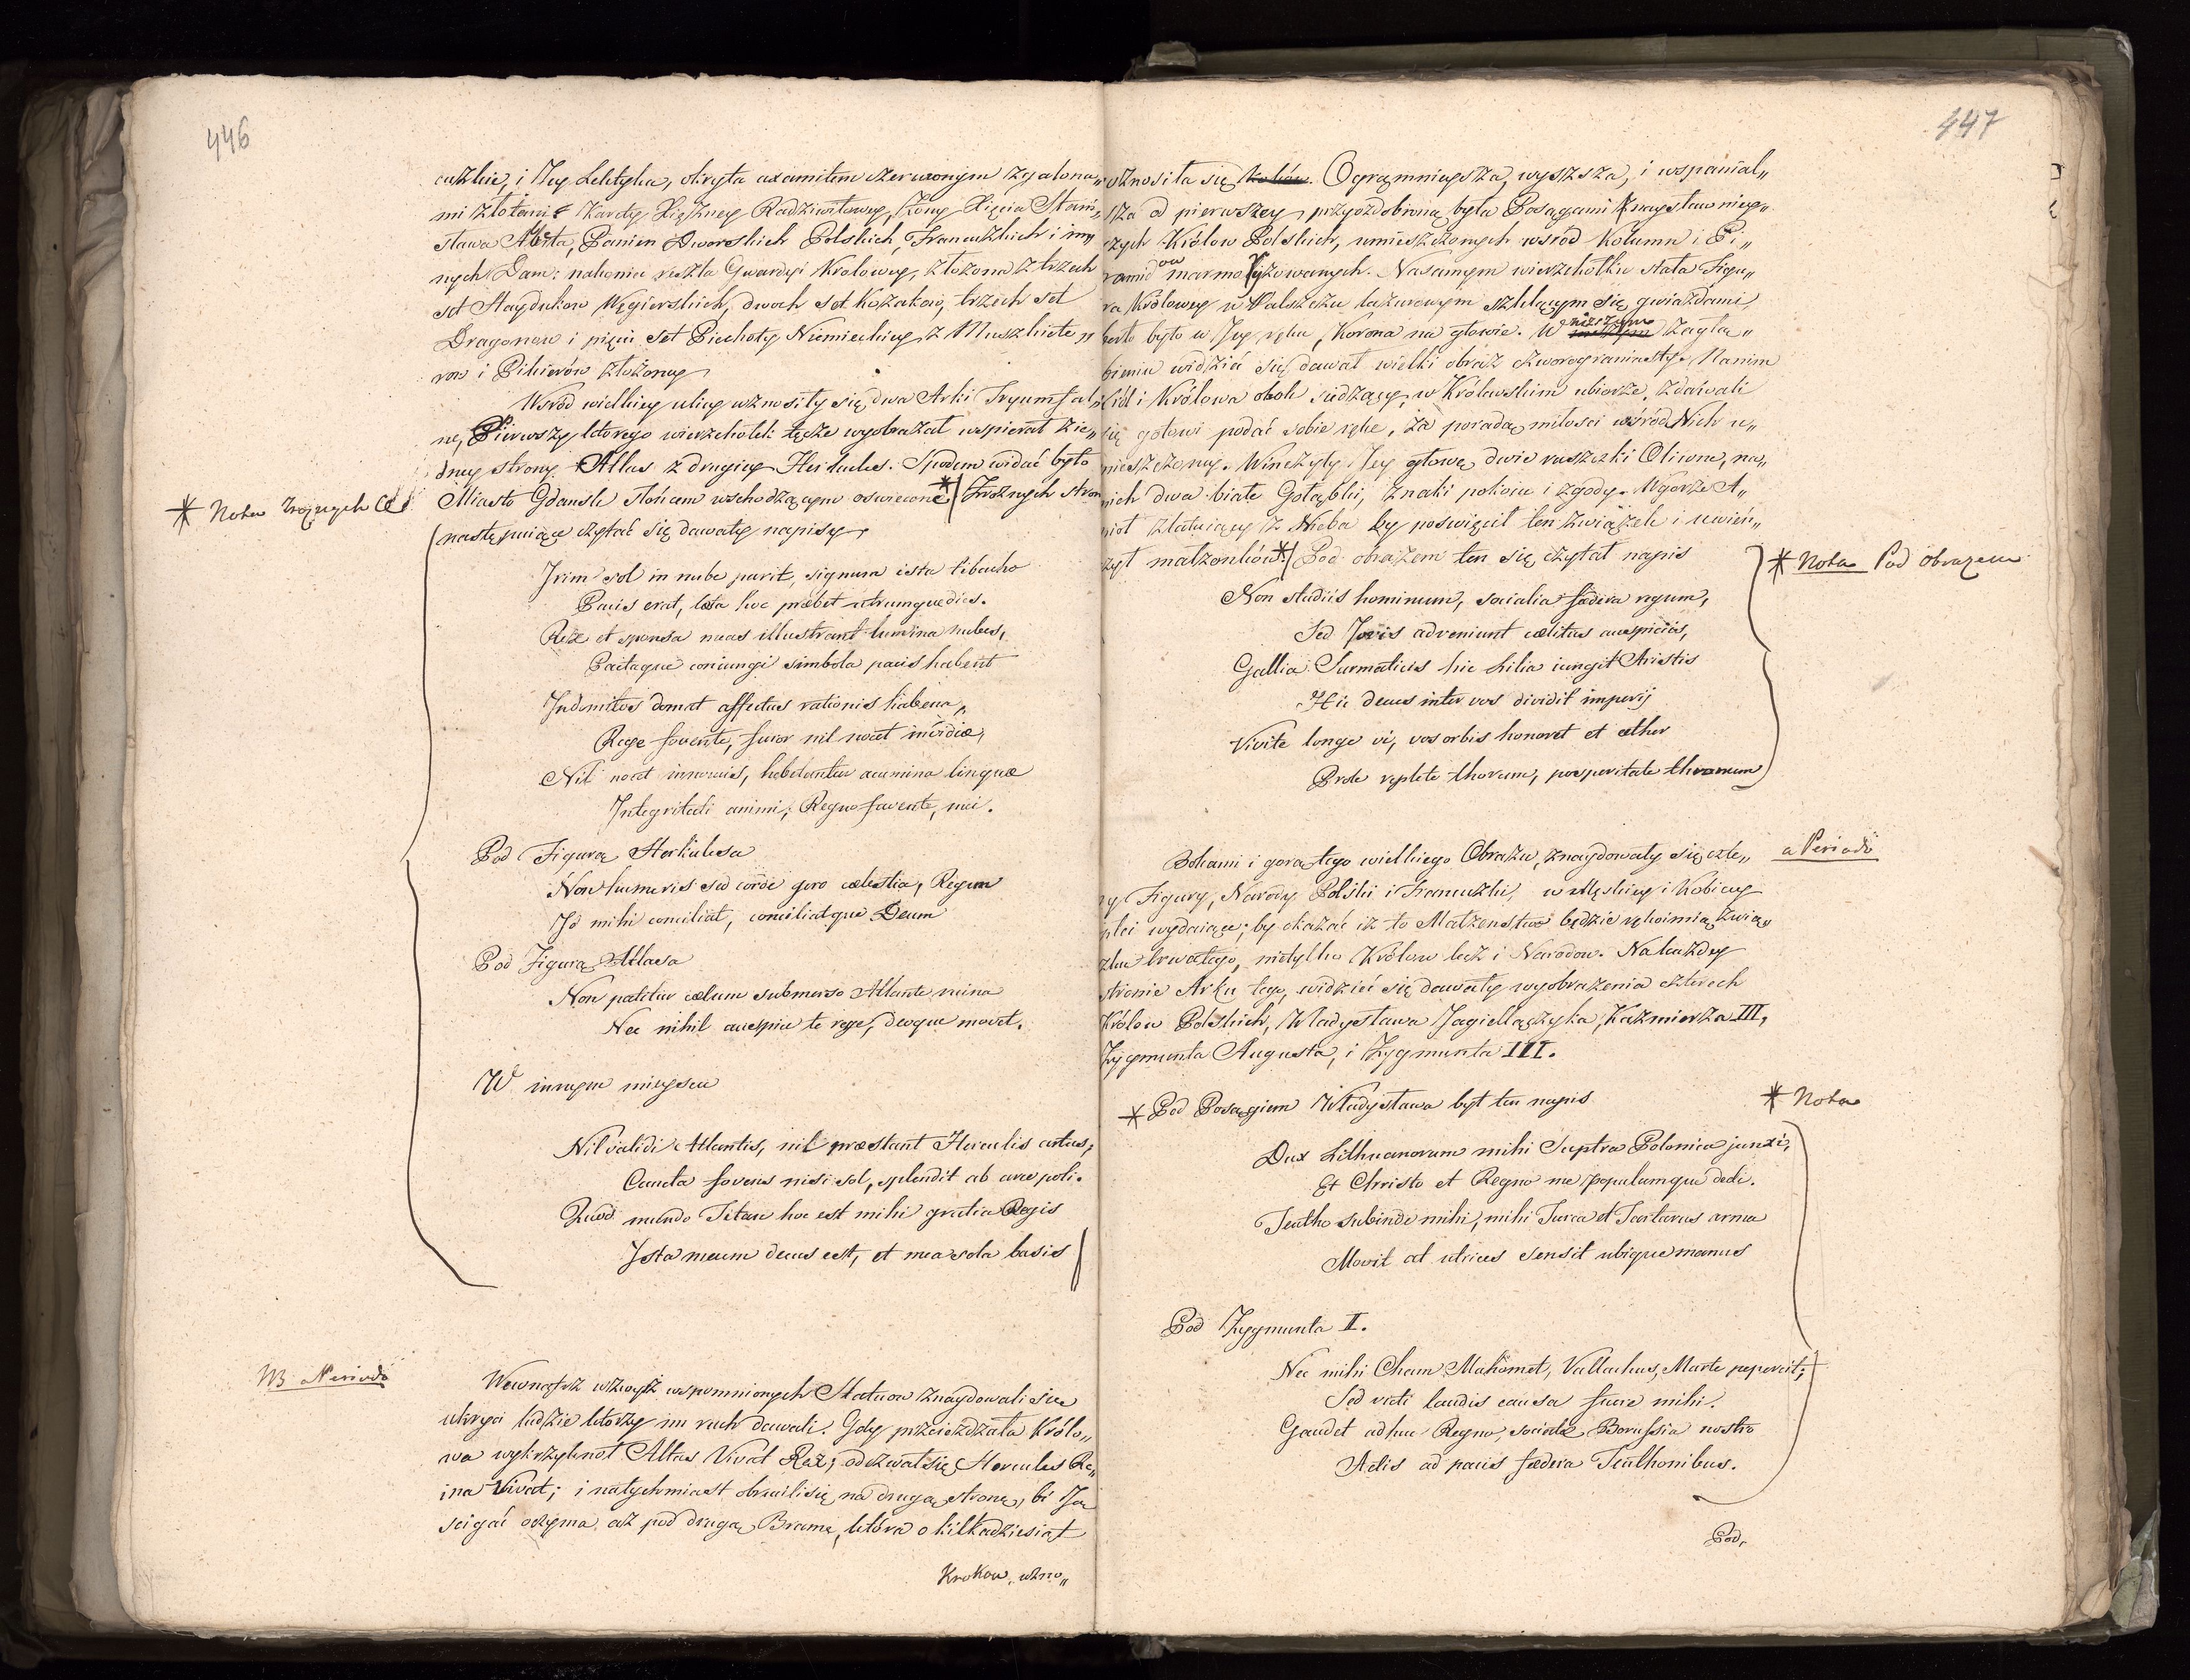 446
cuzkie, i Jey Lektyka, okryta axamitem czerwonym z galona„
mi złotemi. Karety Xiężney Radziwiłłowey, żony Xięcia Stani„
sława Alb.ta, Panien Dworskich Polskich, Francuzkich i in„
nych Dam: nakoniec reszta Gwardyi Krolowey, złożona z trzech
set Haydukow Węgierskich, dwoch set Kozakow, trzech set
Dragonow i pięciu set Piechoty Niemieckiey z Muszkiete„
row i Pikierów złożoney
Wsród wielkiey ulicy wznosiły się dwa Arki Tryumfal„
ne, Pierwszy którego wierzchołek tęcze wyobrażał wspierał z ie„
dney strony Atlas z drugiey Herkules. Spodem widać było
Miasto Gdansk słońcem wschodzącym oswiecone * / Zroznych stron
* Nota Zrożnych &c
następuiące czytać się dawały napisy
Irim sol in nube parit, signum ista
Pacis erat, læta hoc præbet utrumque dies.
Rex et sponsa meas illustrant lumina nubes,
Pactaque coniungi simbola pacis habent
Indomitos domat affectus rationis habena,
Rege favente, furor nil nocet invidiæ,
Nil nocet innocuis, hebetantur acumina linguæ
Integritati animi; Regno favente, mei.
Pod Figurą Herkulesa
Non humeris sed corde gero cælestia, Regem
Id mihi conciliat, conciliatque Deum
Pod Figurą Atlasa
Non patitur cælum submerso Atlante ruina
Nec nihil auspice te rege, deoque movet.
W innym mieyscu
Nil validi Atlantis, nil præstant Herculis artus,
Cuncta fovens nisi sol, splendit ab axe poli.
Quod mundo Titan hoc est mihi gratia Regis
Ista meum decus est, et mea sola basis
NB a Periodo
Wewnątrz wzwyż wspomnionych Statuow znaydowali się
ukryci ludzie którzy im ruch dawali. Gdy przeieżdzała Królo„
wa wykrzyknoł Atlas Vivat Rex; odezwał się Hercules Re„
ina Vivat; i natychmiast obrucili się na drugą stronę, by Ją
scigać oczyma, aż pod drugą Bramę, która o kilkadziesiąt
Krokow, wzno„
447
wznosiła się kroków. Ogromnieysza, wyszsza, i wspanial„
sza od pierwszey, przyozdobioną była Posągami Znaysławniey„
szych Królow Polskich, umieszczonych wśród Kolumn i Pi„
ramid ow marmoryzowanych. Na samym wierzchołku stała Figu„
ra Królowey w Płaszczu lazurowym szklącym się gwiazdami,
berło było w Jey ręku, Korona na głowie. W niższym zagłę„
bieniu widzieć się dawał wielki obraz czworograniasty. Na nim
Król i Królowa obok siedzący, w Królewskim ubiorze, zdawali
się gotowi podać sobie rękę, za poradą miłosci wśród Nich u„
mieszczoney. Winczyły Jey głowę dwie ruszczki Oliwne, na„
nich dwa białe Gołąbki, znaki pokoiu i zgody. W górze A„
nioł zlatuiący z Nieba by poswięcił ten związek i uwień„
czył małżonków * / Pod obrazem ten się czytał napis
* Nota Pod obrazem
Non studiis hominum, socialia fædera regum,
Sed Jovis adveniunt cælitus auspiciis,
Gallia Sarmaticis hic Lilia iungit Aristis
Hic decus inter vos dividit imperij
Vivite longævi, vos orbis honoret et æther
Prole replete thorum, prosperitate thronum
Bokami i gorą tego wielkiego Obrazu, znaydowały się czte„
a Periodo
ry Figury, Narody Polski i Francuzki, w Męskiey i Kobiecey
płci wydaiące; by okazać iż to Małżenstwo będzie rękoimią Zwiąs
zku trwałego, nietylko Królow lecz i Narodow. Na każdey
stronie Arku tego, widzieć się dawały wyobrażenia czterech
Królow Polskich, Władysława Jagiellączyka, Kazmierza III,
Zygmunta Augusta, i Zygmunta III.
* Pod Posągiem Władysława był ten napis
* Nota
Dux Lithuanorum mihi Sceptra Polonica junxi,
Et Christo et Regno me populumque dedi.
Teutho subinde mihi, mihi Turca et Tartarus arma
Movit at ultrices sensit ubique manus
Pod Zygmunta II.
Nec mihi Cham Mahomet, Vallachus, Marte pepercit;
Sed victi laudis causa fuere mihi.
Gaudet adhuc Regno, sociata Borussia nostro
Actis ad pacis fædera Teuthonibus.
Pod,